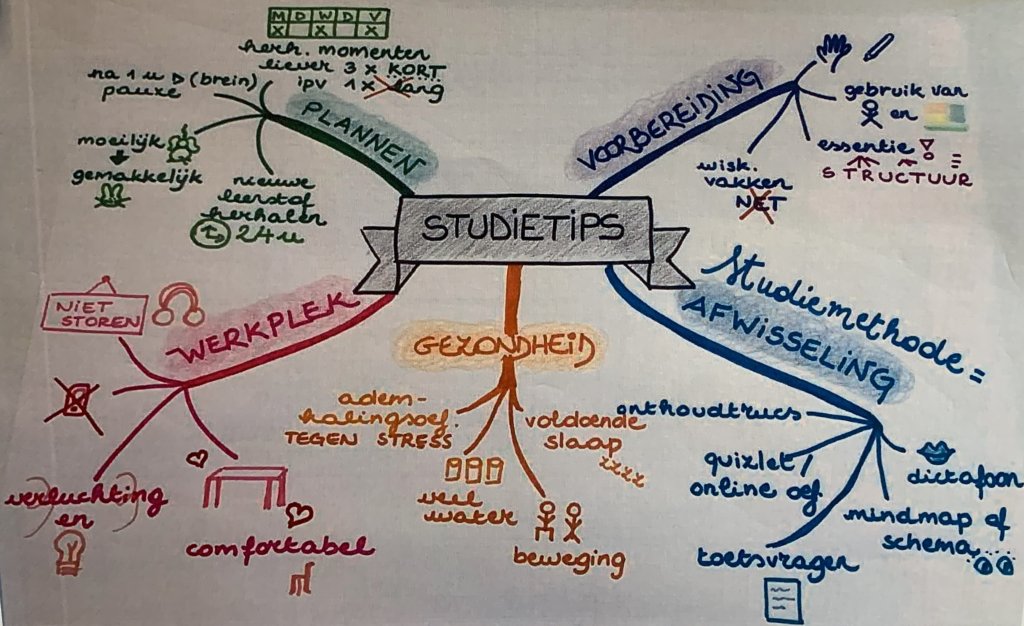 M D W D V
X X X
herh. momenten
liever 3 x KORT
ipv 1 x lang
na 1 u (brein)
pauze
PLANNEN
moeilijk
gemakkelijk
nieuwe
leerstof
herhalen
24 u
VOORBEREIDING
gebruik van
en
essentie
STRUCTUUR
wisk.
vakken
NET
STUDIETIPS
NIET
STOREN
WERKPLEK
verluchting
en
comfortabel
GEZONDHEID
adem-
halingsoef.
TEGEN STRESS
veel
water
voldoende
slaap
zzzz
beweging
Studiemethode =
AFWISSELING
onthoudtrucs
quizlet /
online oef.
toetsvragen
mindmap of
schema...
dictafoon